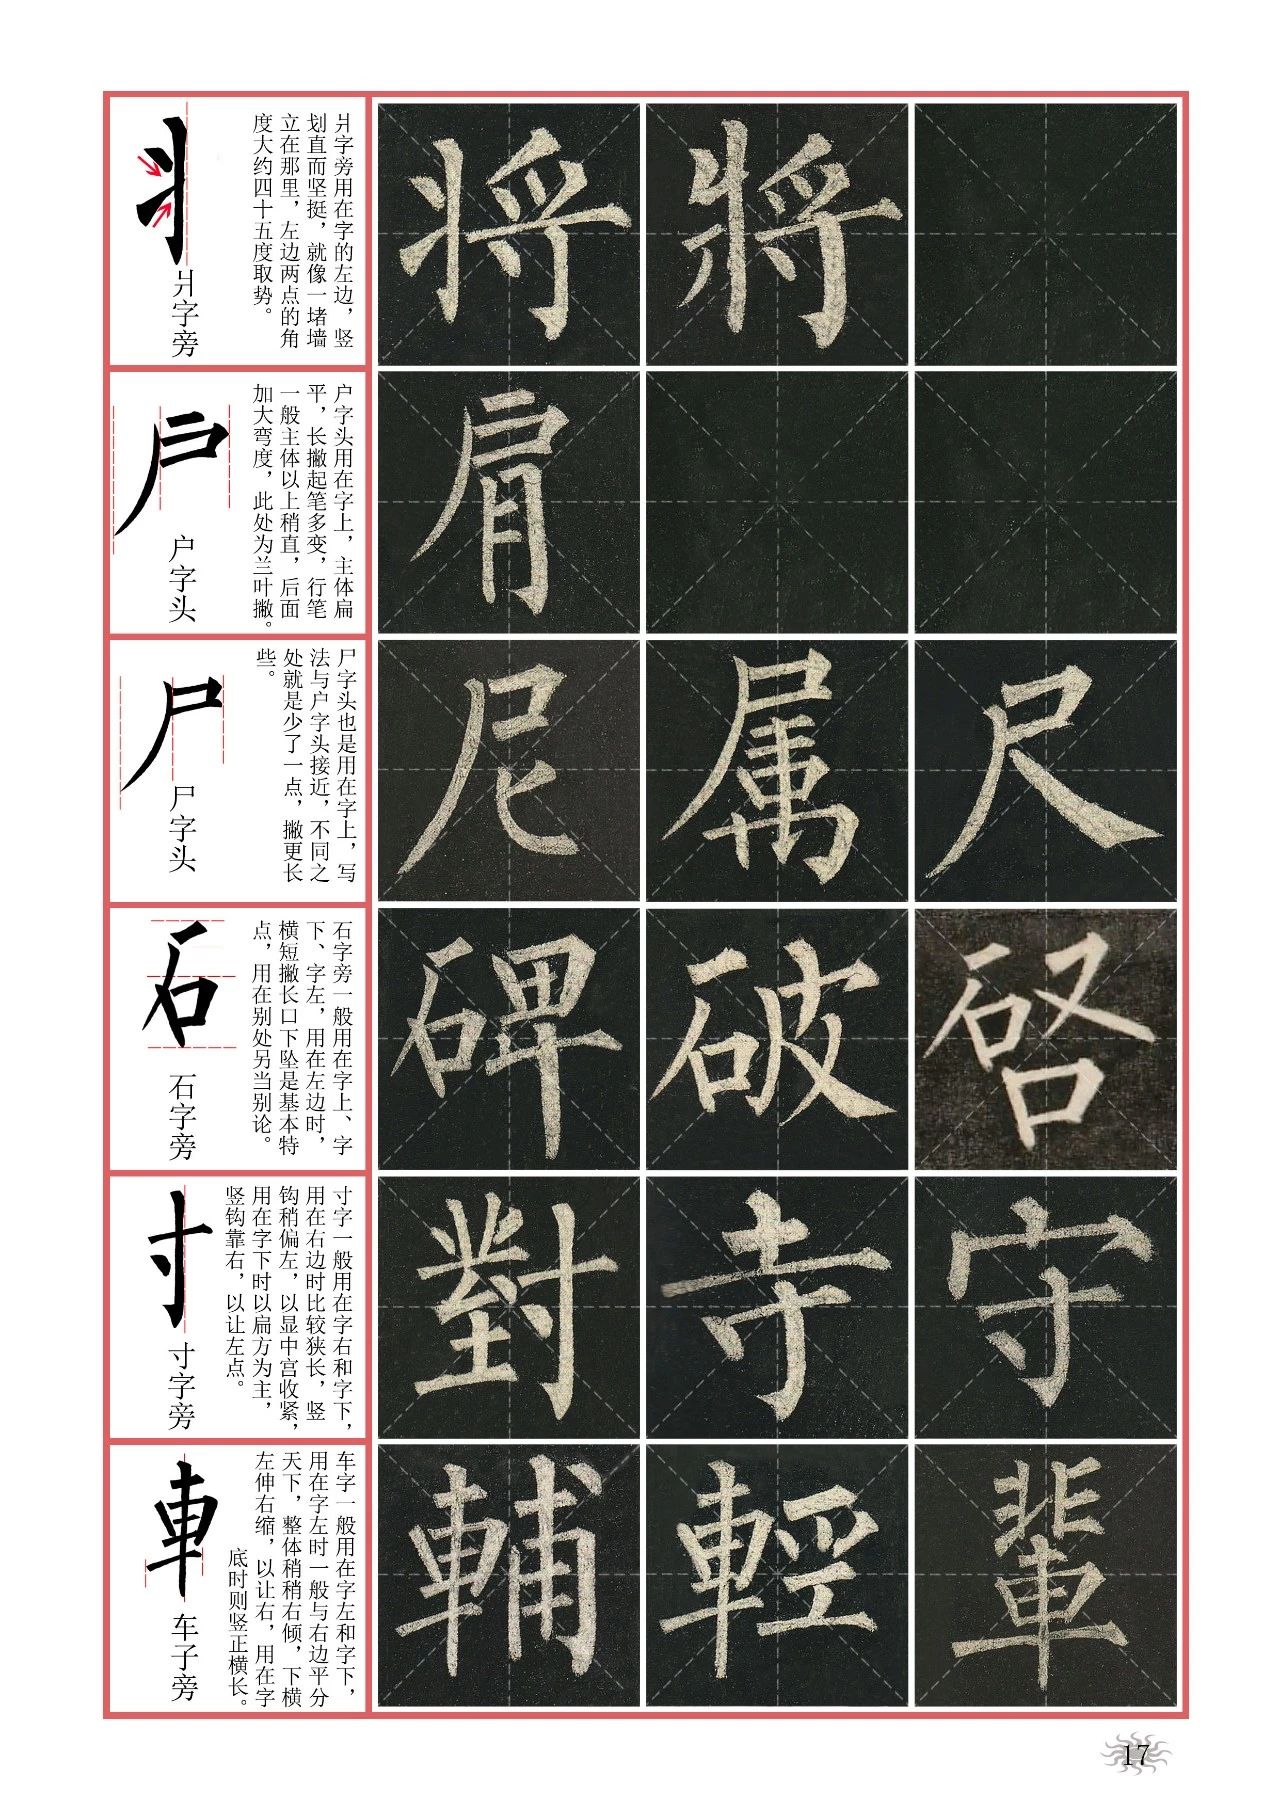 丬字旁用在字的左边，竖
划直而坚挺，就像一堵墙
立在那里，左边两点的角
度大约四十五度取势。
丬字旁
将 將
户字头用在字上，主体扁
平，长撇起笔多变，行笔
一般主体以上稍直，后面
加大弯度，此处为兰叶撇。
户
户字头
肩
尸字头也是用在字上，写
法与户字头接近，不同之
处就是少了一点，撇更长
些。
尸
尸字头
尼 属 尺
石字旁一般用在字上、字
下、字左，用在左边时，
横短撇长口下坠是基本特
点，用在别处另当别论。
石
石字旁
碑 破 硌
寸字一般用在字右和字下，
用在右边时比较狭长，竖
钩稍偏左，以显中宫收紧，
用在字下时以扁方为主，
竖钩靠右，以让左点。
寸
寸字旁
對 寺 守
车字一般用在字左和字下，
用在字左时一般与右边平分
天下，整体稍稍右倾，下横
左伸右缩，以让右，用在字
底时则竖正横长。
車
车子旁
輔 輕 輩
17